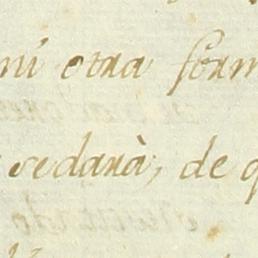 ni otra form
sedarà, de q